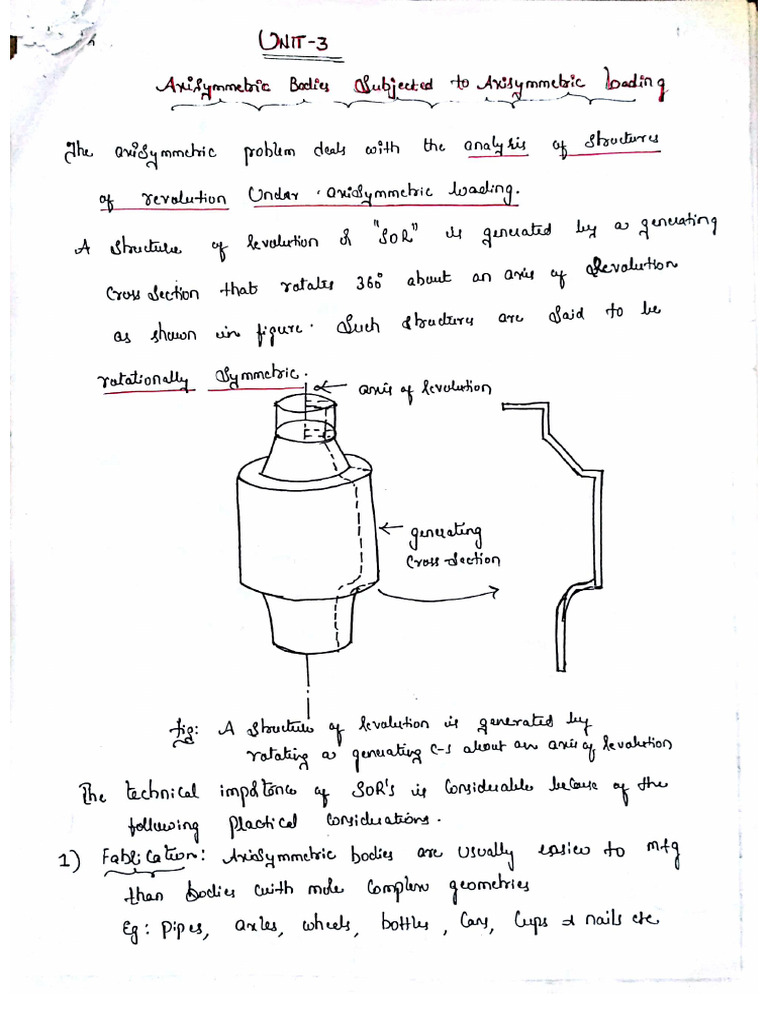 UNIT-3
Axisymmetric Bodies Subjected to Axisymmetric loading
The axisymmetric problem deals with the analysis of structures
of revolution Under axisymmetric loading.
A structure of revolution or "SOR" is generated by a generating
cross section that rotates 360° about an axis of Revolution
as shown in figure. Such structures are said to be
rotationally symmetric.
axis of revolution
generating
cross section
fig: A structure of revolution is generated by
rotating a generating C-S about an axis of revolution
The technical importance of SOR's is considerable because of the
following practical considerations.
1) Fabrication: Axisymmetric bodies are usually easier to mfg
than bodies with more complex geometries
Eg: pipes, axles, wheels, bottles, Cans, Cups & nails etc